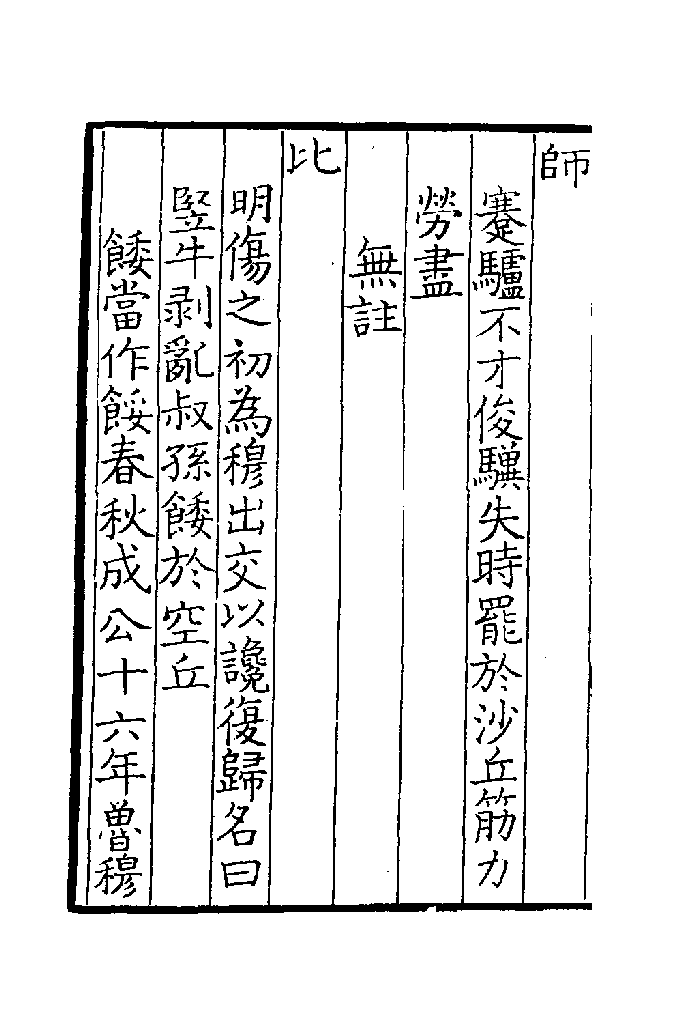 師
蹇驢不才俊驥失時罷於沙丘筋力
勞盡
無註
比
明傷之初為穆出交以讒復歸名曰
豎牛剥亂叔孫餧於空丘
餧當作餒春秋成公十六年魯穆